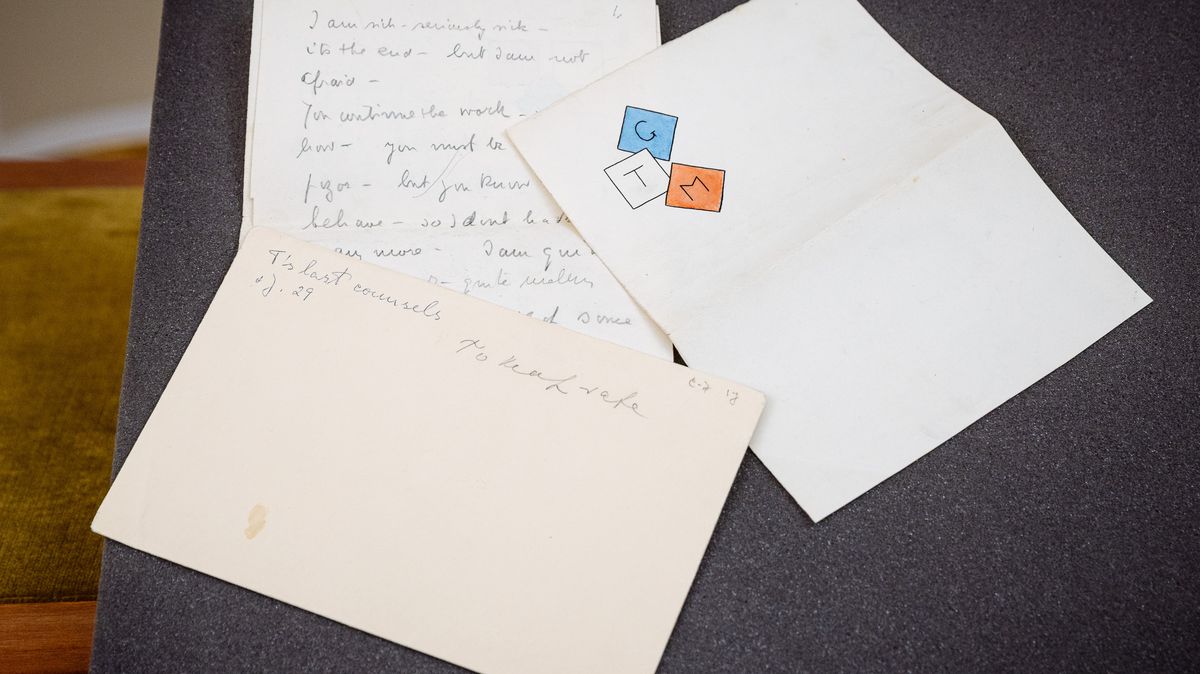 I am sick - seriously sick -
its the end - but I am not
afraid -
You continue the work -
how - you must be
but you know
behave - so I dont have
any more - I am qui
quite
since
T's last counsels
29
To keep safe
G
T
M